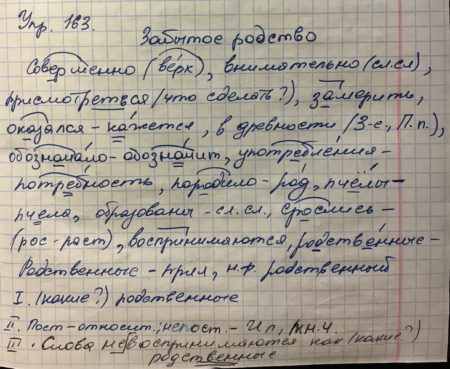 Упр. 163.
Забытое родство
Совершенно (верх), внимательно (сл.сл),
присмотреться (что сделать?), замерить,
оказался - кажется, в древности (3-е, П.п.),
обозначало - обозначит, употребления -
потребность, породило - род, пчёлы -
пчела, образованы - сл.сл., срослись -
(рос - раст), воспринимаются, родственные -
Родственные - прил, н.ф. родственный
I. (какие?) родственные
II. Пост - относит.; непост. - И п., мн.ч.
III. Слова не воспринимаются как (какие?)
родственные